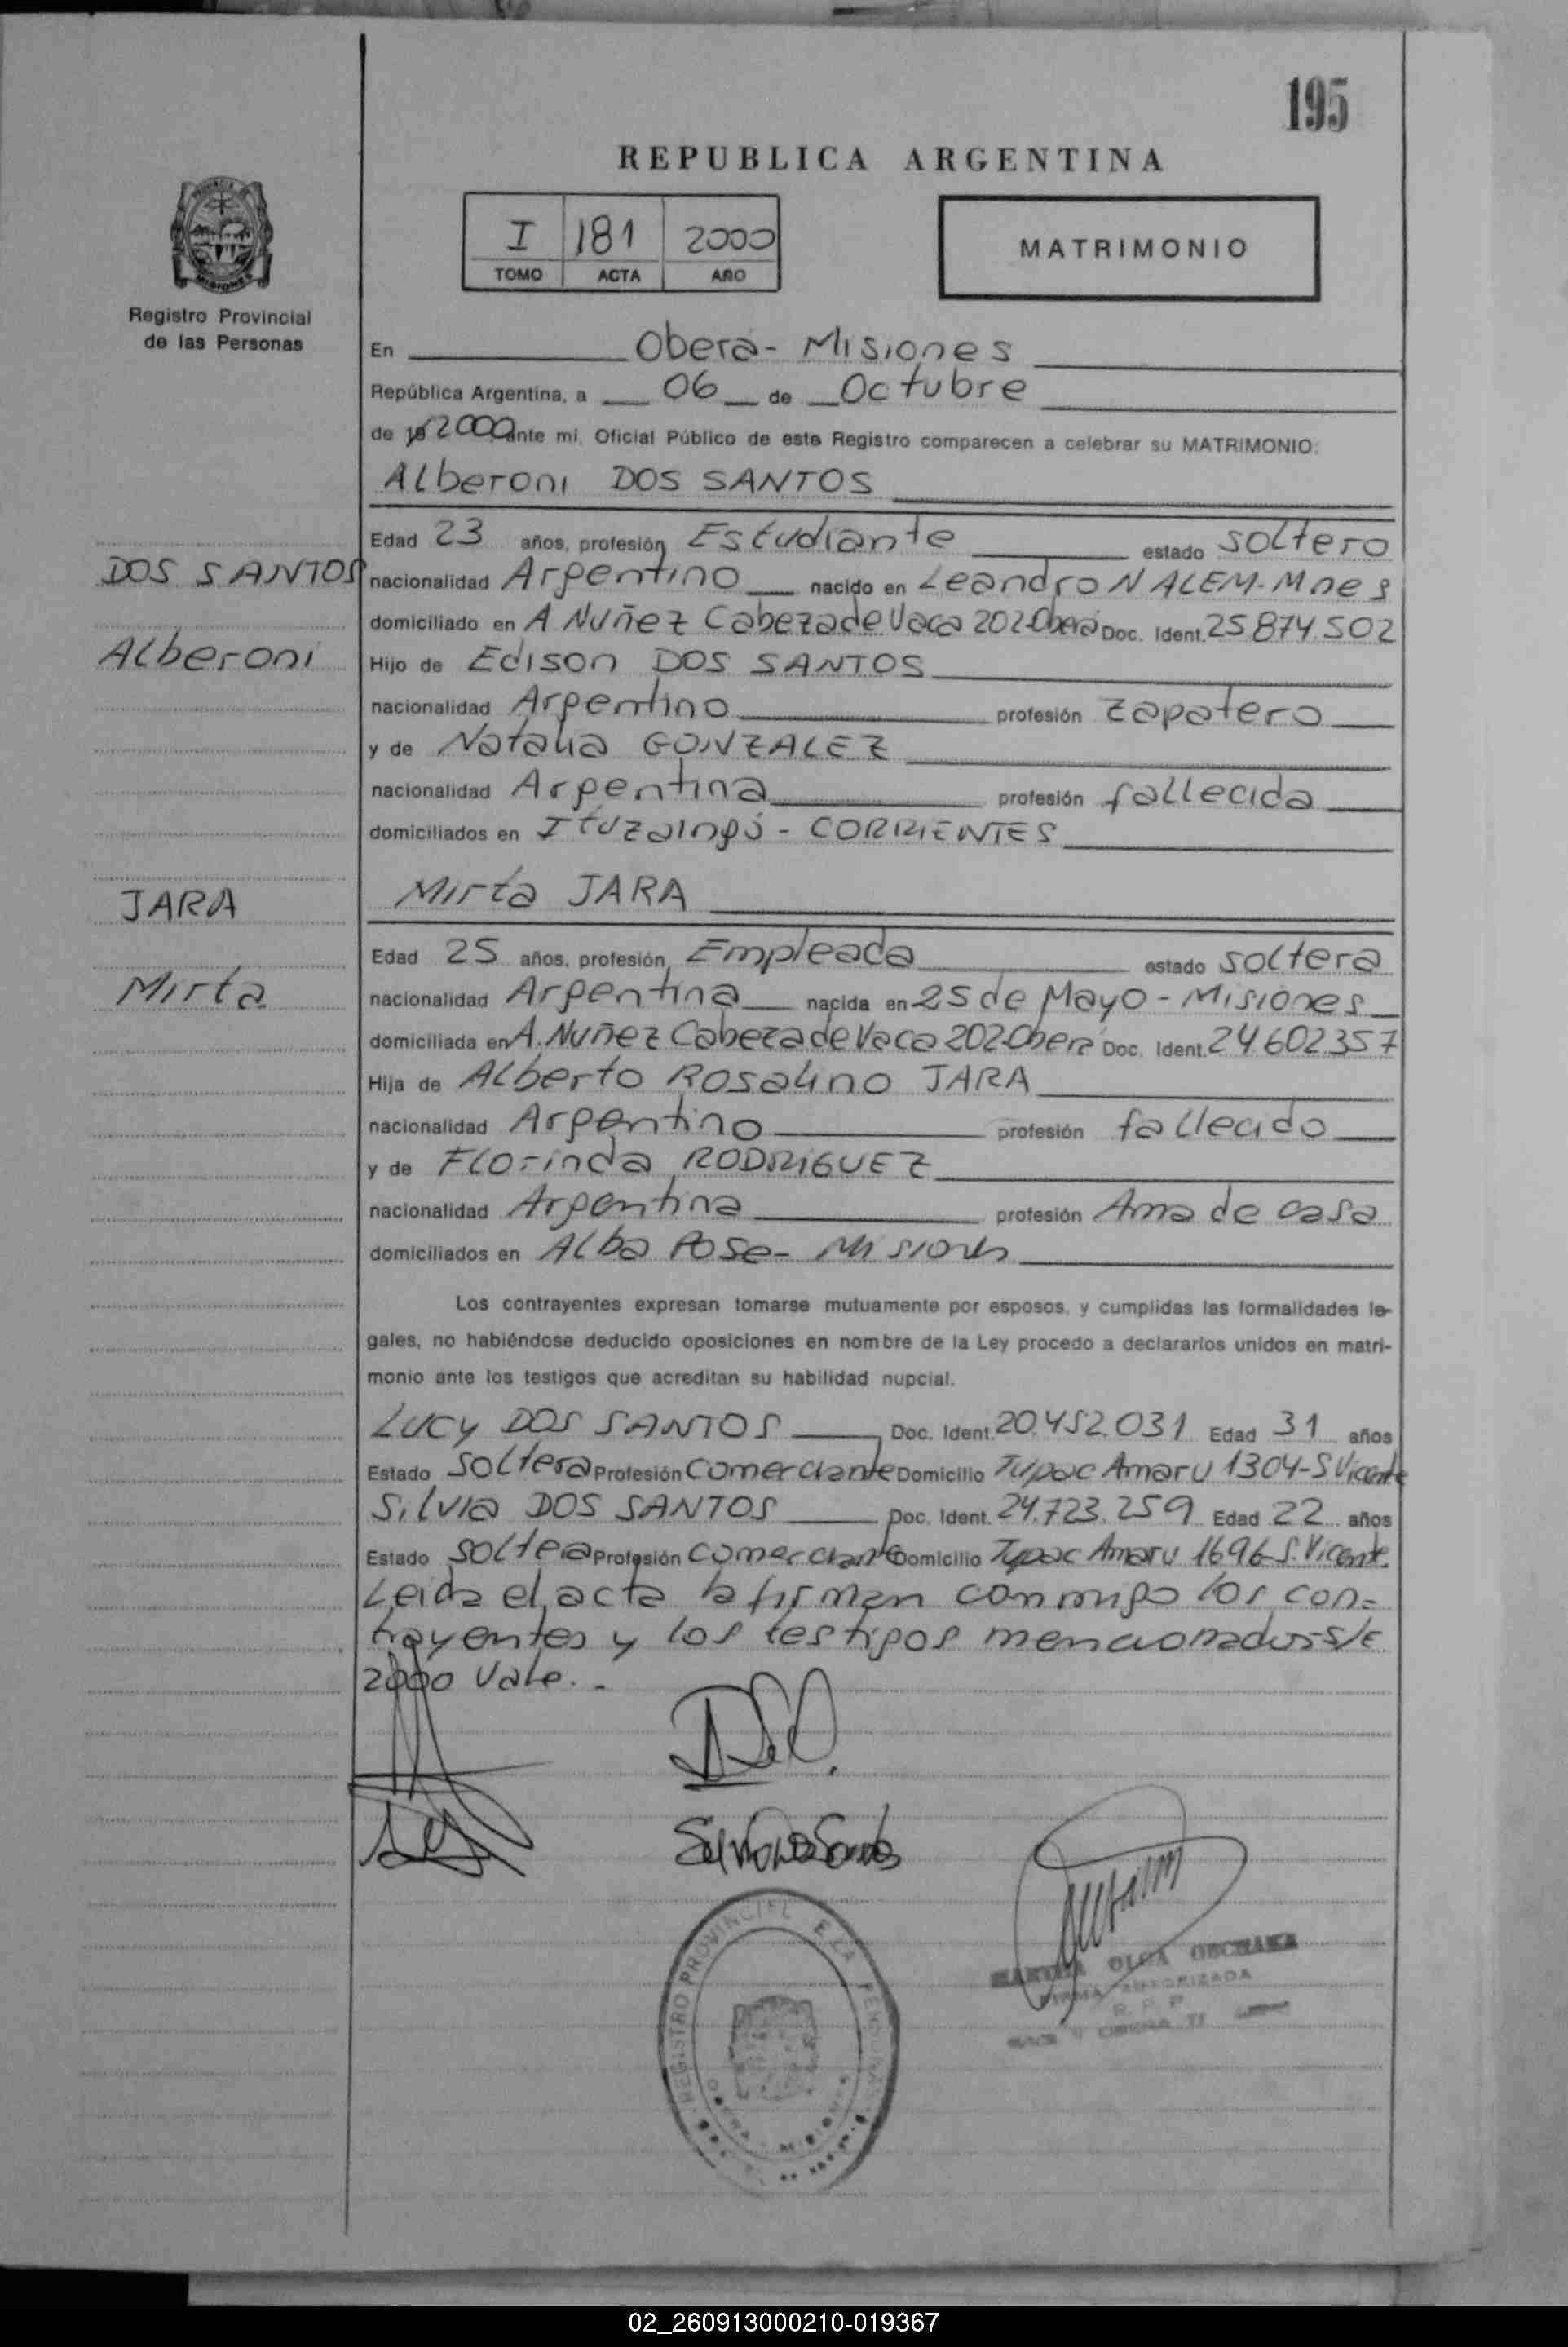 195
REPUBLICA ARGENTINA
I 181 2000
TOMO ACTA AÑO
MATRIMONIO
Registro Provincial
de las Personas
En Oberá - Misiones
República Argentina, a 06 de Octubre
de 19 2000 ante mi, Oficial Público de este Registro comparecen a celebrar su MATRIMONIO:
Alberoni DOS SANTOS
Edad 23 años, profesión Estudiante estado soltero
DOS SANTOS
nacionalidad Argentino nacido en Leandro N ALEM - Mnes
domiciliado en A Nuñez Cabeza de Vaca 202-Oberá Doc. Ident. 25.874.502
Alberoni
Hijo de Edison DOS SANTOS
nacionalidad Argentino profesión zapatero
y de Natalia GONZALEZ
nacionalidad Argentina profesión fallecida
domiciliados en Ituzaingó - CORRIENTES
JARA
Mirta JARA
Edad 25 años, profesión Empleada estado soltera
Mirta
nacionalidad Argentina nacida en 25 de Mayo - Misiones
domiciliada en A. Nuñez Cabeza de Vaca 202-Oberá Doc. Ident. 24.602.357
Hija de Alberto Rosalino JARA
nacionalidad Argentino profesión fallecido
y de Florinda RODRIGUEZ
nacionalidad Argentina profesión Ama de casa
domiciliados en Alba Pose - Misiones
Los contrayentes expresan tomarse mutuamente por esposos, y cumplidas las formalidades le-
gales, no habiéndose deducido oposiciones en nombre de la Ley procedo a declararlos unidos en matri-
monio ante los testigos que acreditan su habilidad nupcial.
Lucy DOS SANTOS Doc. Ident. 20.452.031 Edad 31 años
Estado Soltera Profesión Comerciante Domicilio Tupac Amaru 1304-S Vicente
Silvia DOS SANTOS Doc. Ident. 24.723.259 Edad 22 años
Estado Soltera Profesión Comerciante Domicilio Tupac Amaru 1696-S. Vicente.
Leida el acta la firman conmigo los con-
trayentes y los testigos mencionados-S/E
2000 Vale. -
Silvia Dos Santos
REGISTRO PROVINCIAL DE LA PERSONAS
OLGA
FIRMA AUTORIZADA
R. P. P.
02_260913000210-019367